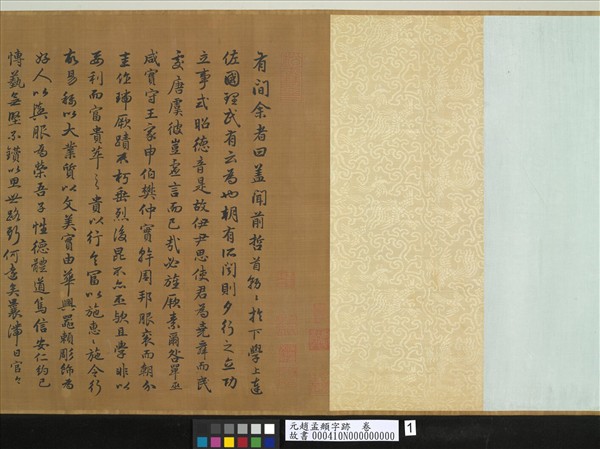 有間余者曰蓋聞前哲首務〻於下學上達
佐國理民有云為也朝有所聞則夕行之立功
立事式昭德音是故伊尹思使君為堯舜而民
處唐虞彼豈虛言而已哉必旌厥素爾咎單巫
咸寔守王家申伯樊仲實幹周邦服袞而朝介
圭作瑞厥蹟不朽垂烈後昆不亦丕歟且學非以
要利而富貴萃之貴以行令富以施惠〻施令行
故易稱以大業質以文美實由華興器賴彫飾為
好人以輿服為榮吾子性德體道篤信安仁約己
博藝無堅不鑽以思世路斯何遠矣曩滯日官今
元趙孟頫字跡 卷
故書000410N000000000
1